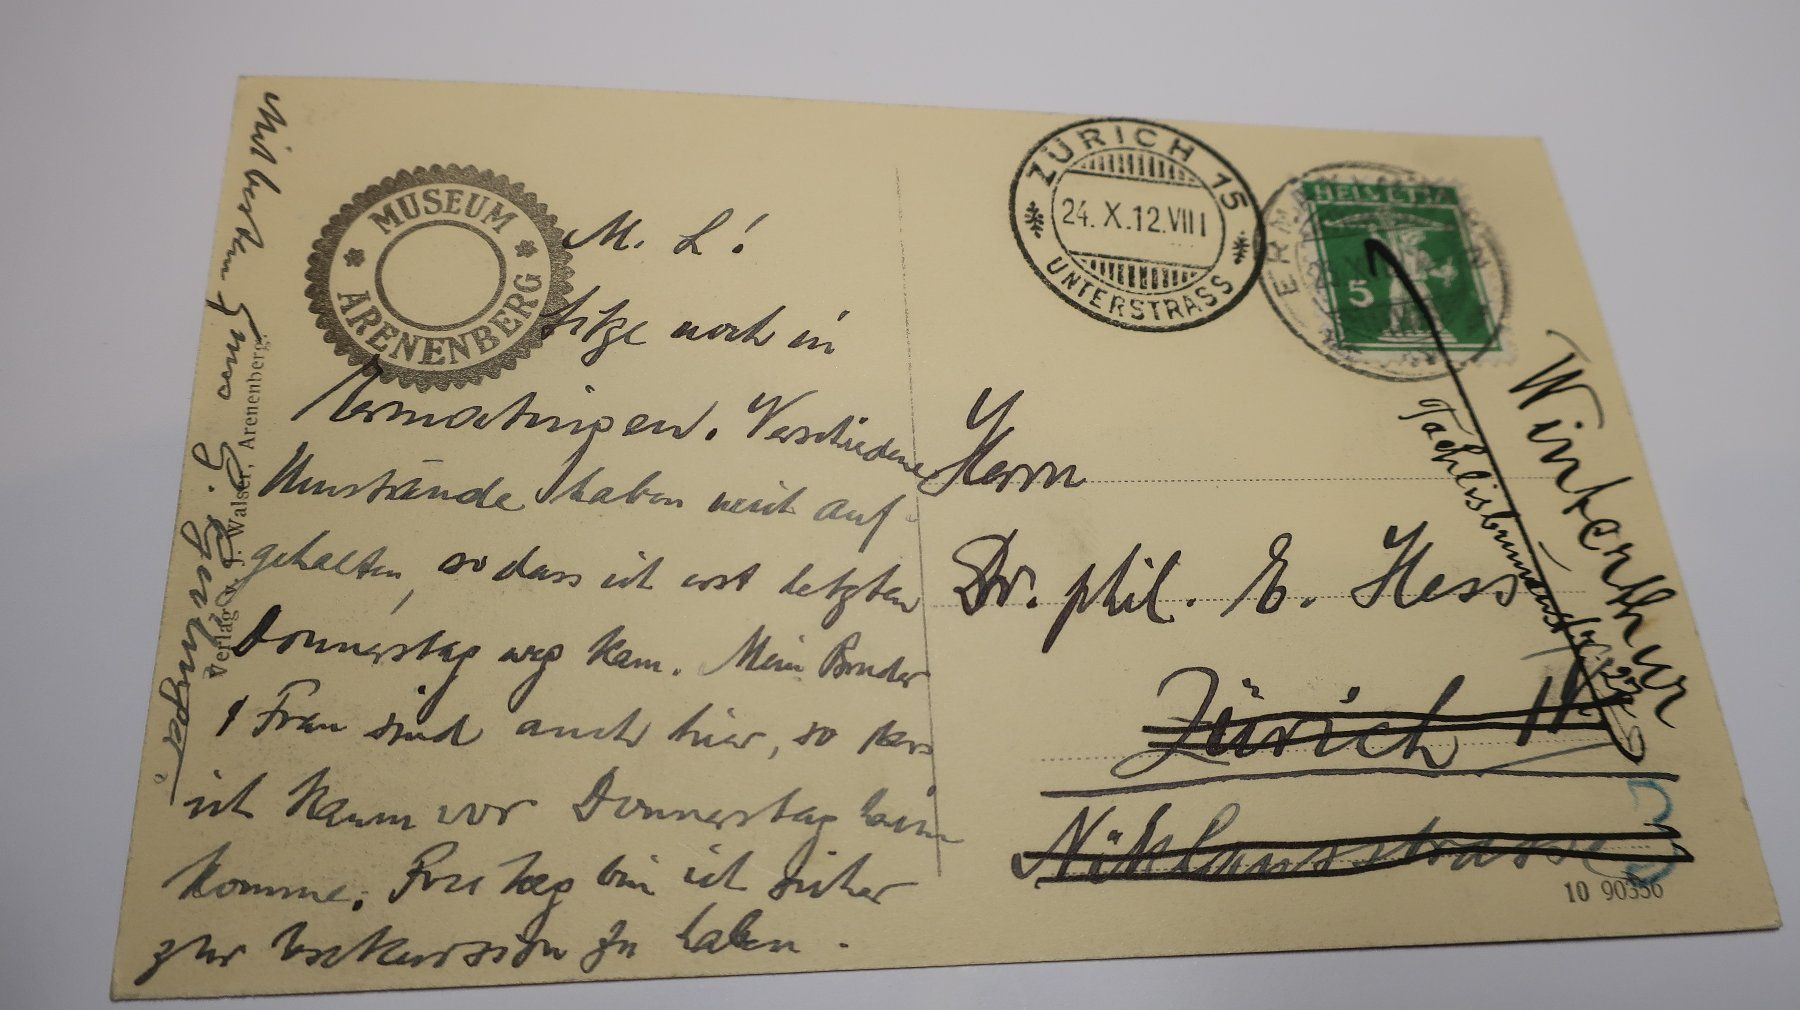 MUSEUM
ARENENBERG
M. L!
Sitze noch in
Ermatingen. Verschiedene
Umstände haben mich auf-
gehalten, so dass ich erst letzten
Donnerstag weg kam. Mein Bruder
& Frau sind auch hier, so dass
ich kaum vor Donnerstag heim
komme. Freitag bin ich sicher
zur Exkursion zu haben.
Mit bestem Gruss
Verlag v. J. Walser, Arenenberg.
ZÜRICH 15
24. X. 12. VIII
UNTERSTRASS
HELVETIA
5
Herrn
Dr. phil. E. Hess
Zürich
Winterthur
10 90356